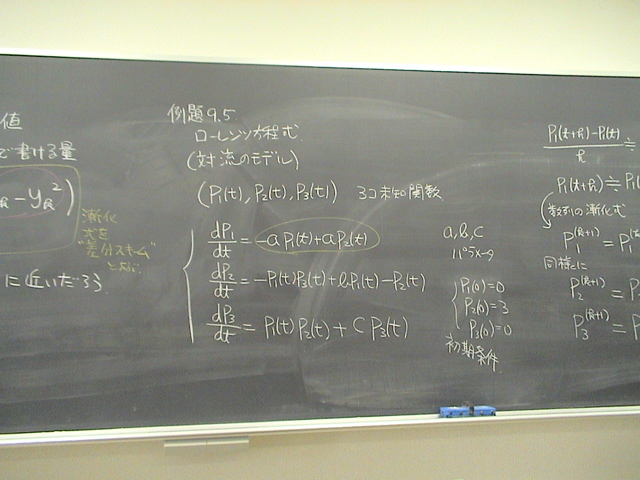 値
で書ける量
- y_k²)
漸化
式を
"差分スキーム"
という.
に近いだろう.
例題9.5
ローレンツ方程式
(対流のモデル)
(P₁(t), P₂(t), P₃(t)) 3コ未知関数
dP₁/dt = -aP₁(t)+aP₂(t)
dP₂/dt = -P₁(t)P₃(t)+bP₁(t)-P₂(t)
dP₃/dt = P₁(t)P₂(t)+CP₃(t)
a, b, c
パラメータ
P₁(0)=0
P₂(0)=3
P₃(0)=0
初期条件
(P₁(t+h)-P₁(t))/h ≒
P₁(t+h)≒P₁
数列の漸化式
P₁^(k+1) = P₁
同様に
P₂^(k+1) = P
P₃^(k+1) = P